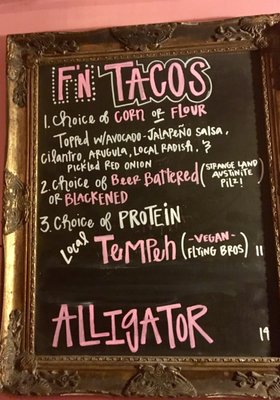 F'N TACOS
1. Choice of CORN OR FLOUR
Topped w/AVOCADO-JALAPEÑO SALSA,
Cilantro, ARUGULA, LOCAL RADISH, &
pickled RED ONION
2. Choice of BEER BATTERED (STRANGE LAND
AUSTINITE
PILZ!)
OR BLACKENED
3. Choice of PROTEIN
Local TEMPEH (-VEGAN-
FLYING BROS) 11
ALLIGATOR 14